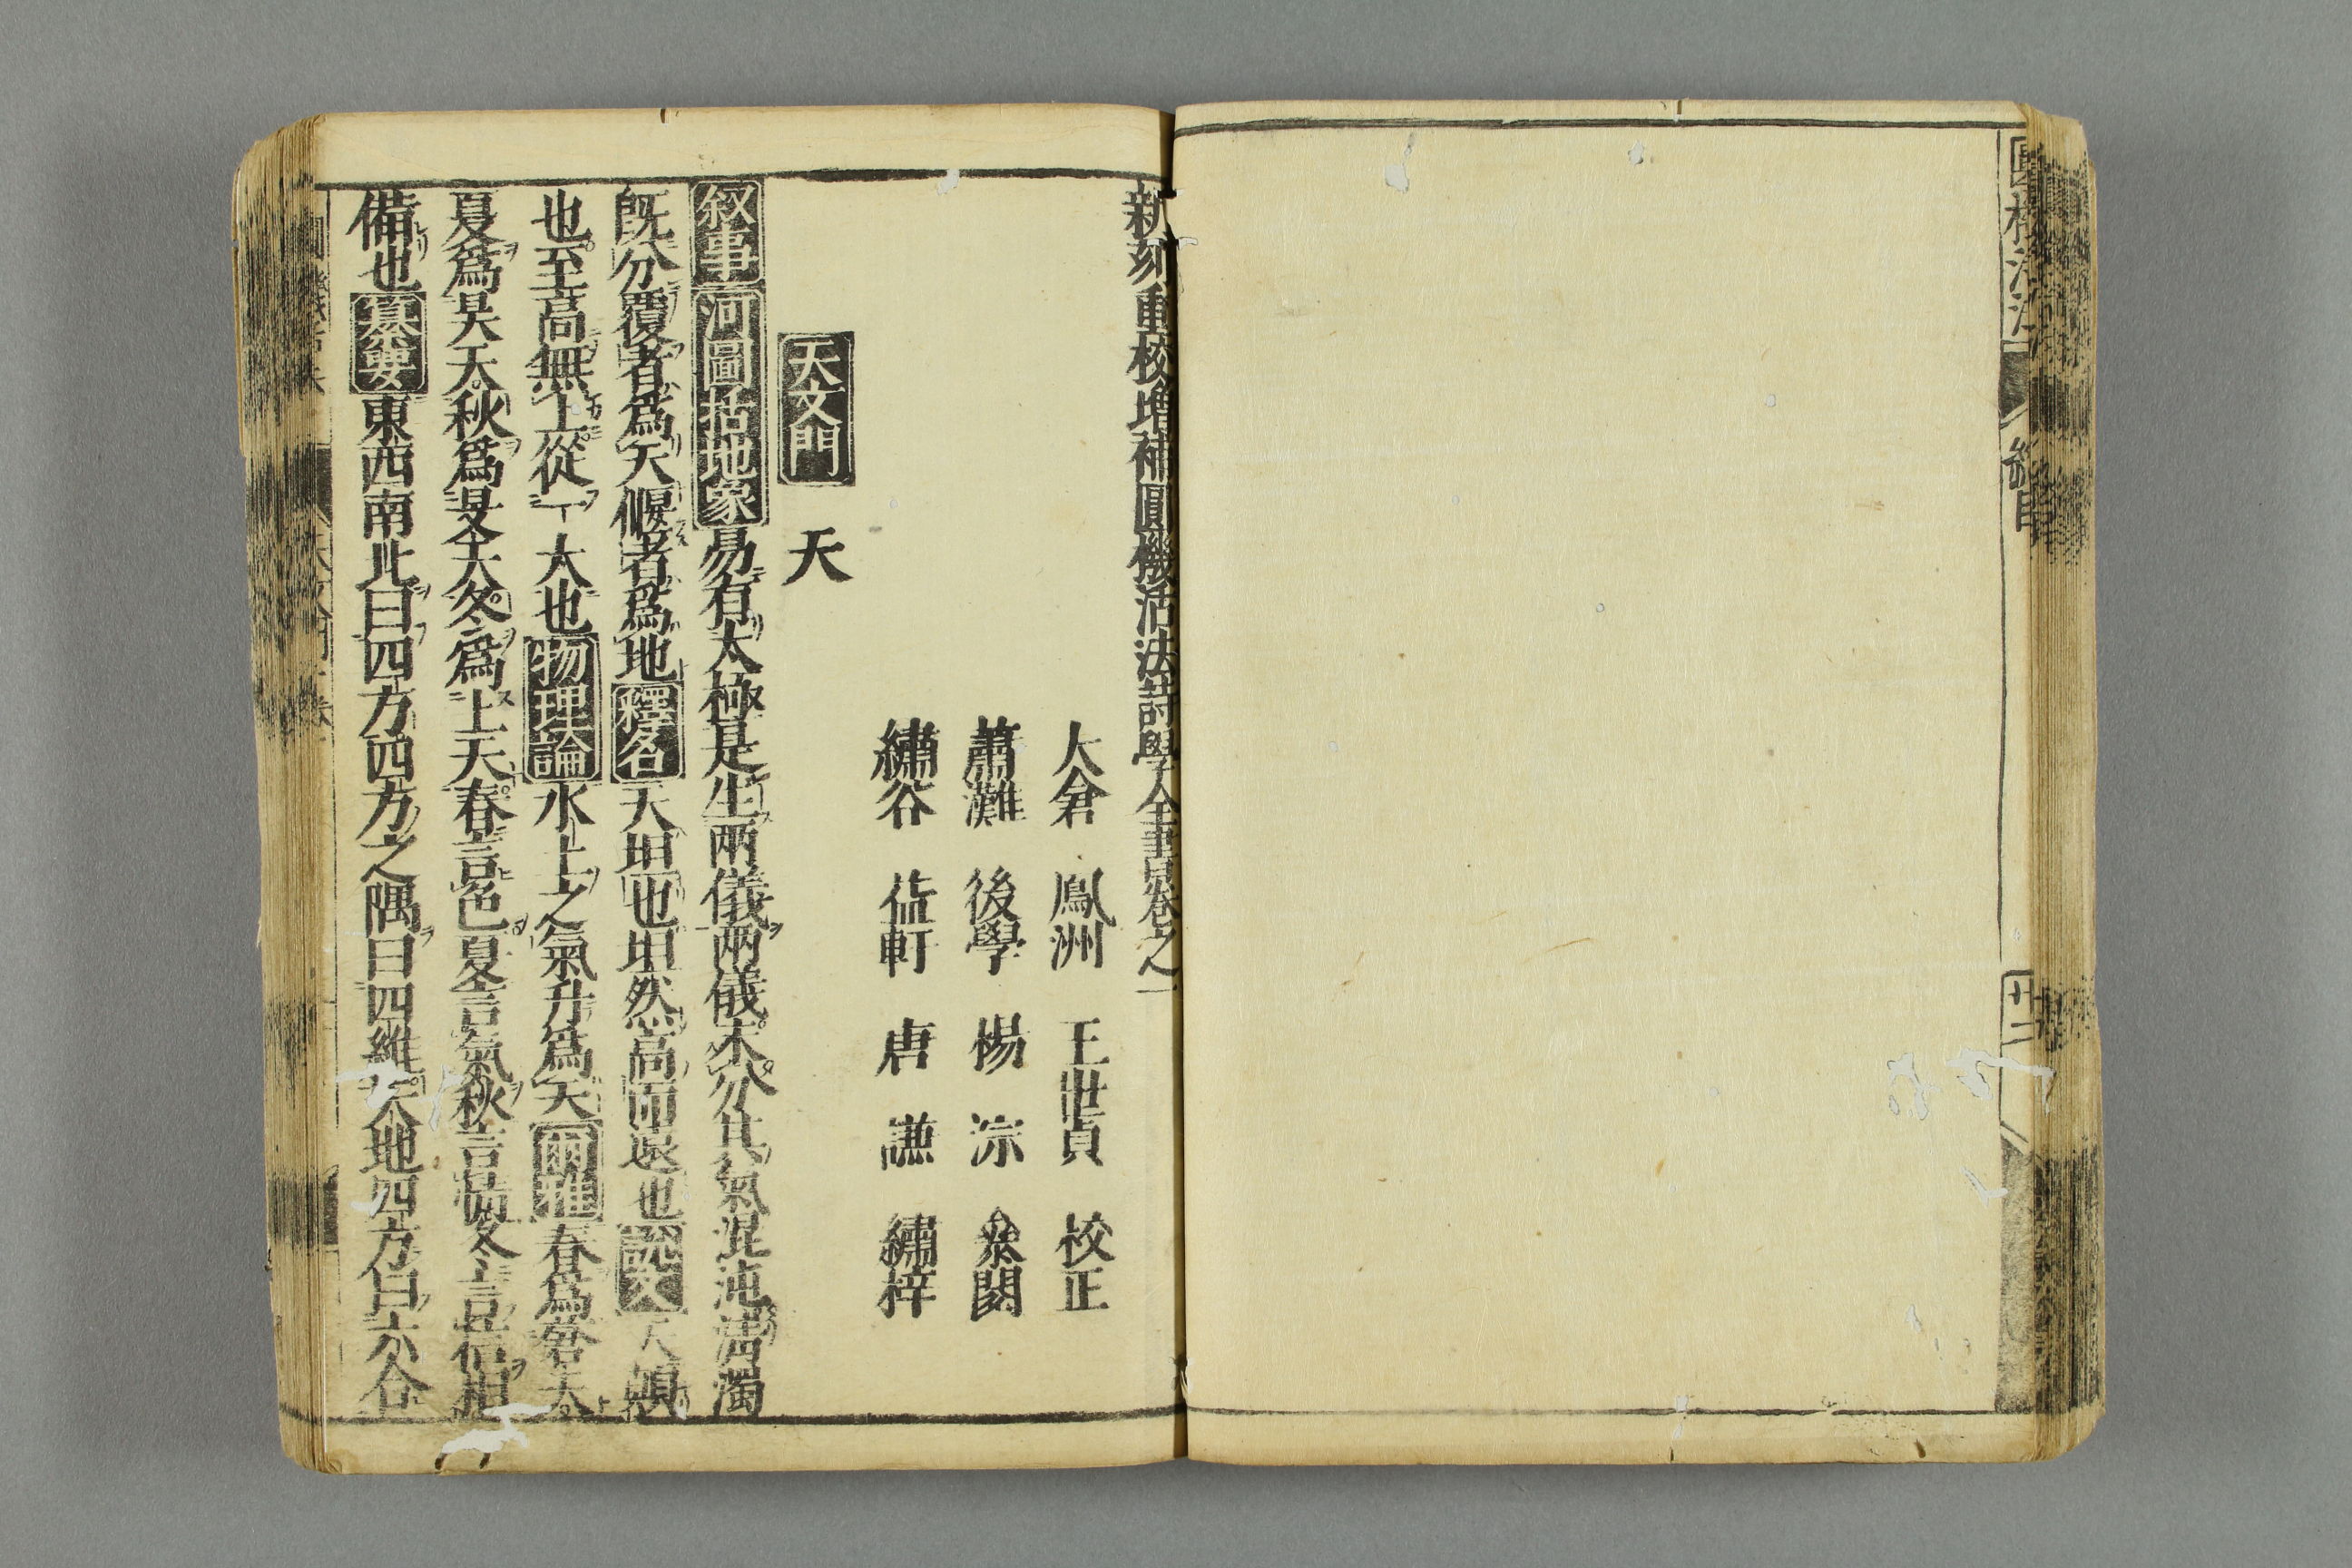 新刻重校增補圓機活法詩學全書卷之一
大倉 鳳洲 王世貞 校正
蕭灘 後學 楊淙 叅閱
繡谷 益軒 唐謙 繡梓
天文門 天
叙事 河圖括地象 易有太極是生兩儀兩儀未分其氣混沌清濁
既分覆者爲天偃者爲地 釋名 天坦也坦然高而遠也 說文 天顛
也至高無上從一大也 物理論 水土之氣升爲天 爾雅 春爲蒼天
夏爲昊天秋爲旻天冬爲上天春言色夏言氣秋言情冬言位相
備也 纂要 東西南北曰四方四方之隅曰四維天地四方曰六合